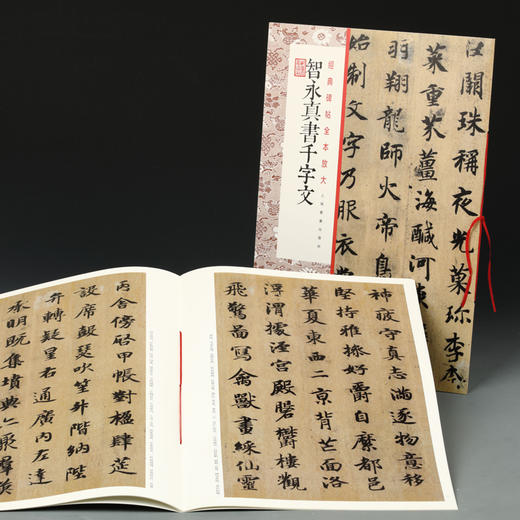 經典碑帖全本放大
智永真書千字文
巨闕珠稱夜光菓珍李柰
菜重芥薑海醎河
羽翔龍師火帝鳥
始制文字乃服衣
神疲守真志滿逐物意移
堅持雅操好爵自縻都邑
華夏東西二京背芒面洛
浮渭據涇宮殿磐欝樓觀
飛驚圖寫禽獸畫綵仙靈
丙舍傍啓甲帳對楹肆筵
設席鼓瑟吹笙升階納陛
弁轉疑星右通廣內左達
承明既集墳典亦聚群英